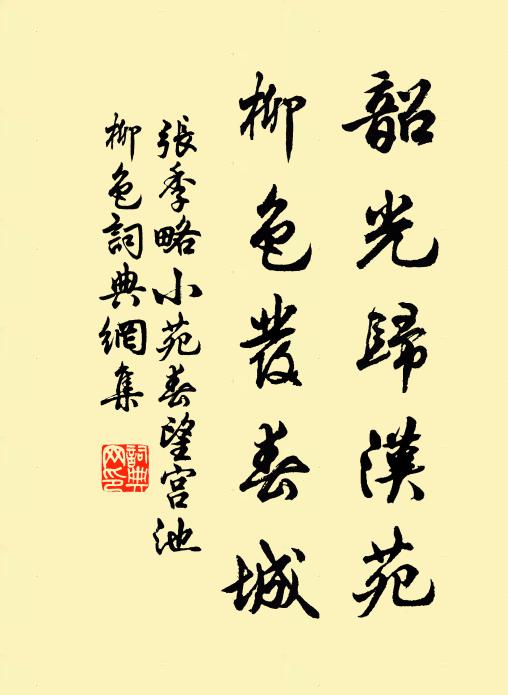 韶光歸漢苑
柳色發春城
張季略小苑春望宮池
柳色詞典網集
詞典
网印